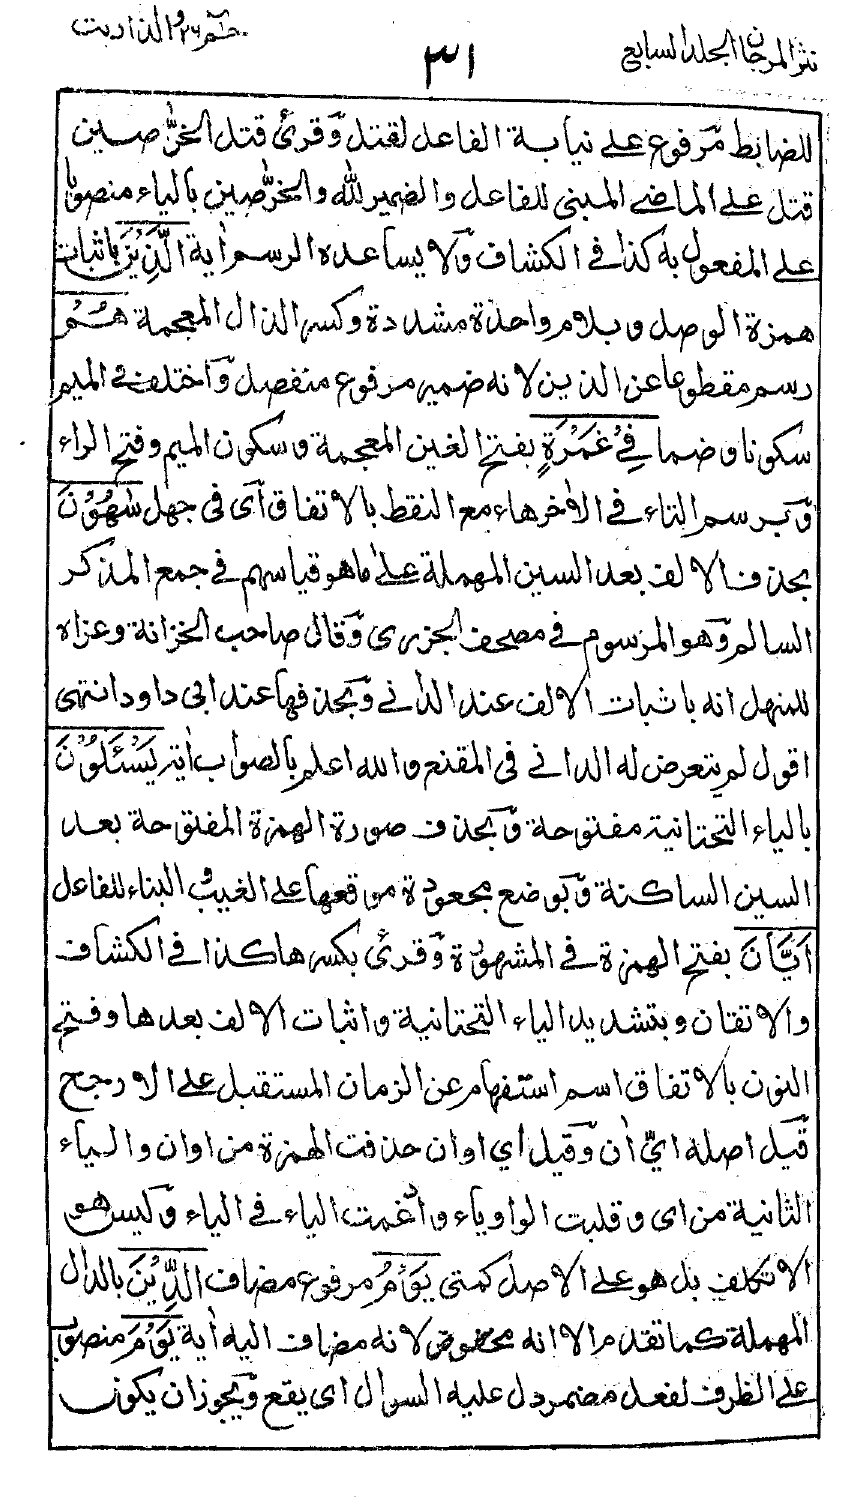 نثر المرجان الجلد السابع
٣١
حٰم ٢٦ والذاريت
للضابط مرفوع على نيابة الفاعل لقتل وَقرئ قتل الخرّٰصين
قتل على الماضي المبني للفاعل والضمير لله والخرّٰصين بالياء منصوبا
على المفعول به كذا في الكشاف وَلا يساعده الرسم اٰية الَّذِيْنَ باثبات
همزة الوصل وبلام واحدة مشددة وكسر الذال المعجمة هُمْ
رسم مقطوعا عن الذين لانه ضمير مرفوع منفصل وَاختلف في الميم
سكونا وضما فِيْ غَمْرَةٍ بفتح الغين المعجمة وسكون الميم وفتح الراء
وَبرسم التاء في الاٰخر هاء مع النقط بالاتفاق اَى فى جهل سٰهُوْنَ
بحذف الالف بعد السين المهملة على ما هو قياسهم في جمع المذكر
السالم وَهو المرسوم في مصحف الجزرى وَقال صاحب الخزانة وعزاه
للمنهل انه باثبات الالف عند الدانے وَبحذفها عند ابى داود انتهى
اقول لم يتعرض له الدانے فى المقنع والله اعلم بالصواب اٰية يَسْئَلُوْنَ
بالياء التحتانية مفتوحة وَبحذف صورة الهمزة المفتوحة بعد
السين الساكنة وَبوضع مجعودة موقعها على الغيب والبناء للفاعل
اَيَّانَ بفتح الهمزة في المشهورة وَقرئ بكسرها كذا في الكشاف
والاتقان وبتشديد الياء التحتانية واثبات الالف بعدها وفتح
النون بالاتفاق اسم استفهام عن الزمان المستقبل على الارجح
قَيل اصله ايّ اٰن وَقيل اي اوان حذفت الهمزة من اوان والياء
الثانية من اى وقلبت الواو ياء وادغمت الياء في الياء وَليس هو
الا تكلف بل هو على الاصل كمتى يَوْمُ مرفوع مضاف الدِّيْنِ بالدال
المهملة كما تقدم الا انه مخفوض لانه مضاف اليه اٰية يَوْمَ منصوب
على الظرف لفعل مضمر دل عليه السوال اى يقع وَيجوز ان يكون